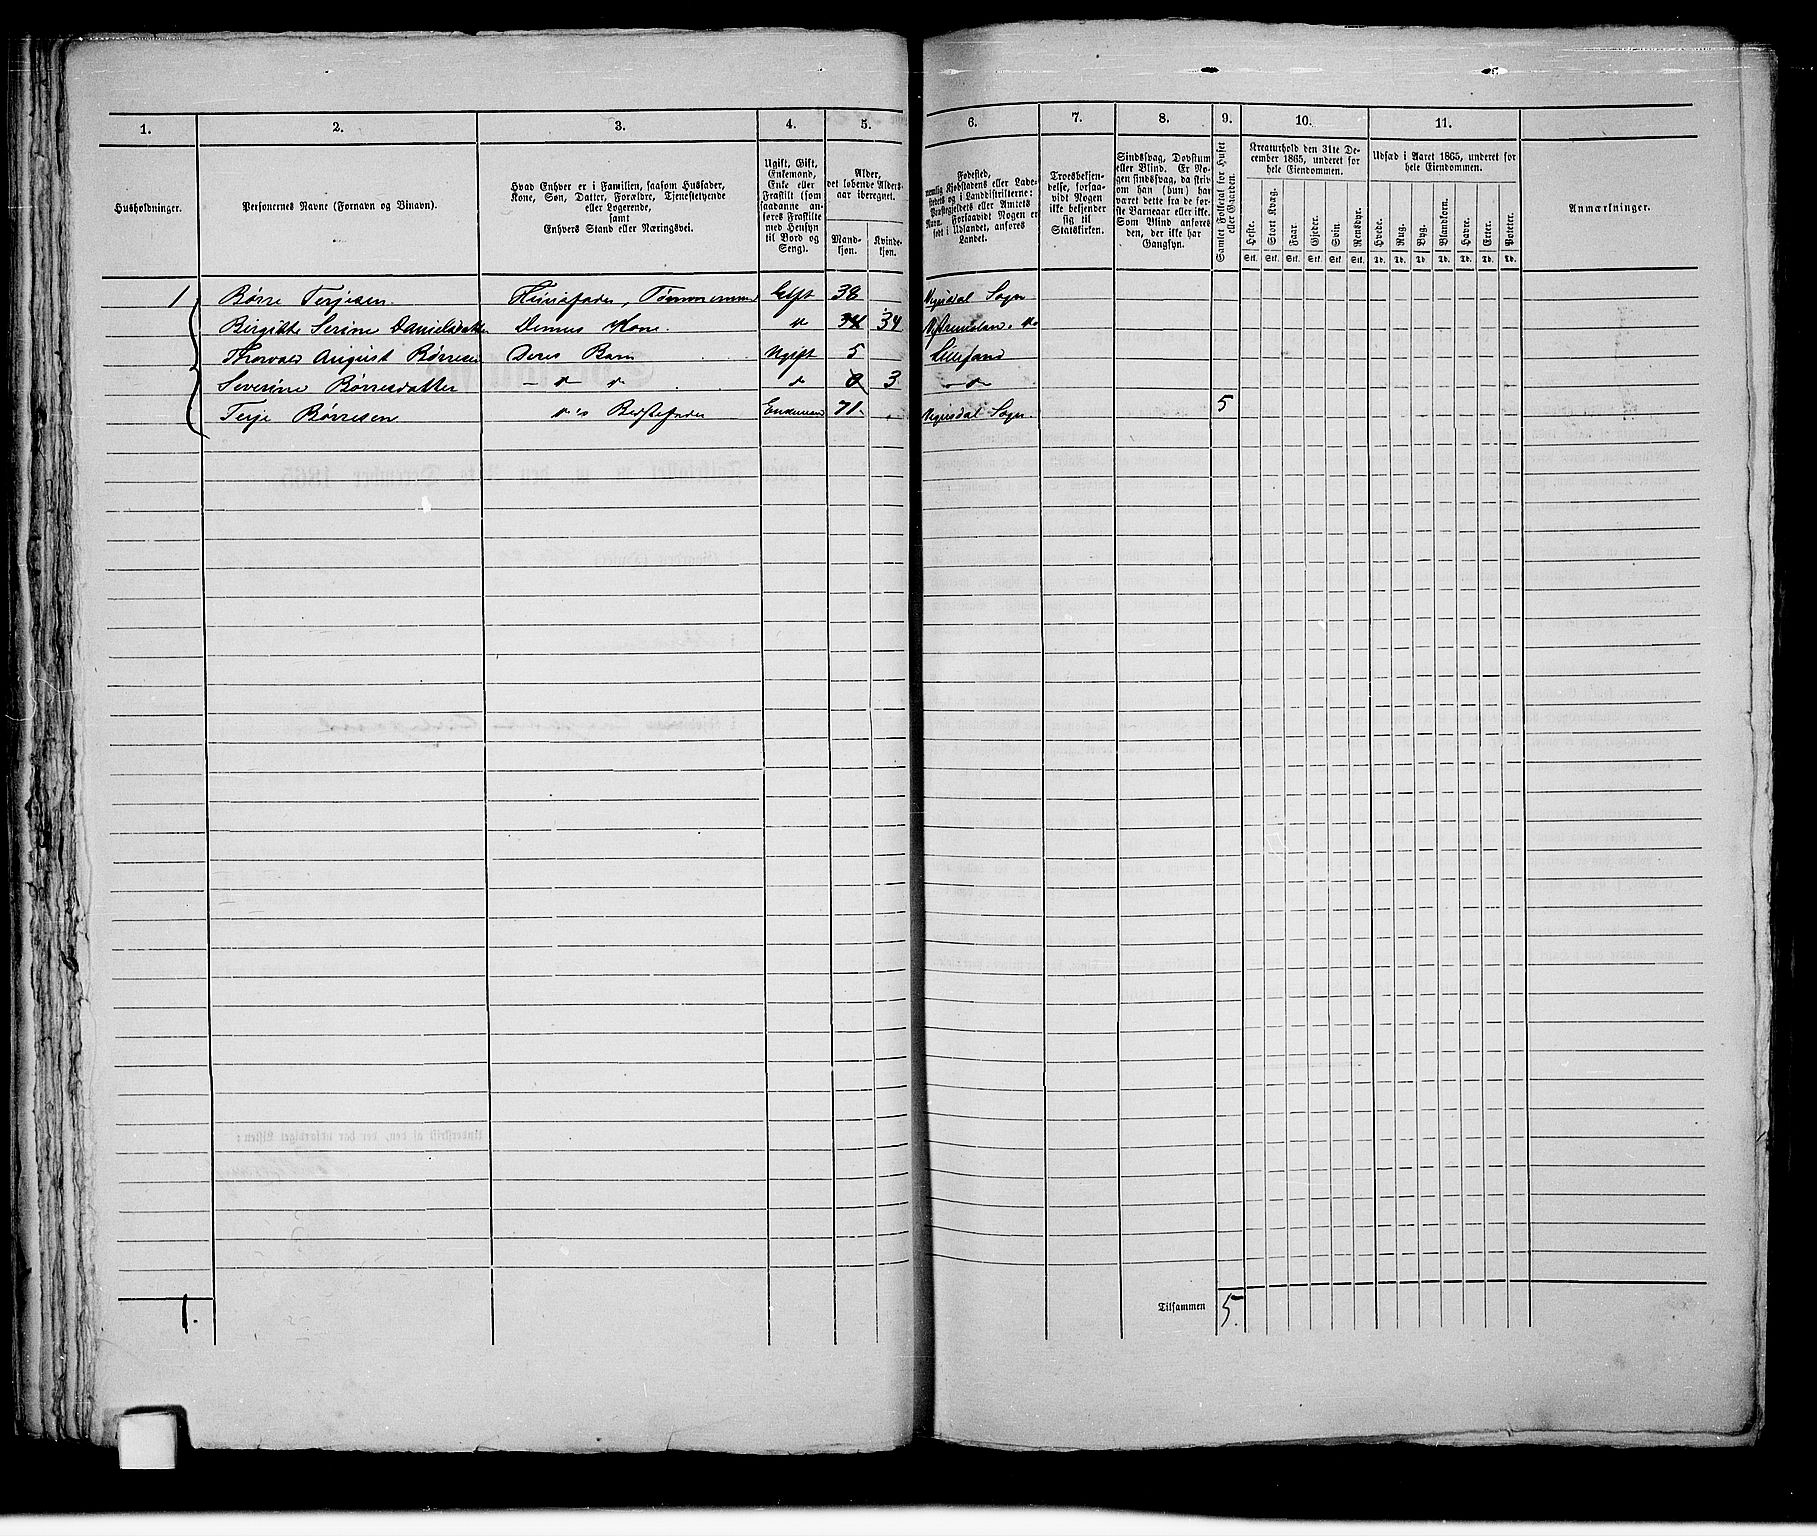 1. 2. 3. 4. 5. 6. 7. 8. 9. 10. 11.
Husholdninger.
Personernes Navne (Fornavn og Binavn).
Hvad Enhver er i Familien, saasom Husfader,
Kone, Søn, Datter, Forældre, Tjenestetyende
eller Logerende,
samt
Enhvers Stand eller Næringsvei.
Ugift, Gift,
Enkemand,
Enke eller
Fraskilt (som
saadanne an-
føres Fraskilte
med Hensyn
til Bord og
Seng).
Alder,
det løbende Alders-
aar iberegnet.
Mand-
kjøn.
Kvinde-
kjøn.
Fodested,
nemlig Kjøbstadens eller Lade-
stedets og i Landdistrikterne:
Præstegjeldets eller Amtets
Navn. Forsaavidt Nogen er
født i Udlandet, anføres
Landet.
Troesbekjen-
delse, forsaa-
vidt Nogen
ikke bekjender
sig til
Statskirken.
Sindssvag, Døvstum
eller Blind. Er No-
gen sindssvag, da skriv
om han (hun) har
været dette fra de før-
ste Barneaar eller ikke.
Som Blind anføres
den, der ikke har
Gangsyn.
Samlet Folketal for Huset
eller Gaarden.
Kreaturhold den 31te De-
cember 1865, underet for
hele Eiendommen.
Heste. Stort Kvæg. Faar. Gjeder. Svin. Rensdyr.
Stk. Stk. Stk. Stk. Stk. Stk.
Udsæd i Aaret 1865, underet for
hele Eiendommen.
Hvede. Rug. Byg. Blandkorn. Havre. Erter. Poteter.
Td. Td. Td. Td. Td. Td. Td.
Anmærkninger.
1 Børre Terjesen Huusfader, Tømmermand Gift 38 Vegusdal Sogn
Birgitte Serine Danielsdatter Dennes Kone " 34 34
Thorvald August Børresen Deres Barn Ugift 5 Lillesand
Severine Børresdatter – " " " 3 – " –
Terje Børresen "'s Bedstefader Enkemand 71 Vegusdal Sogn 5
1. Tilsammen 5.